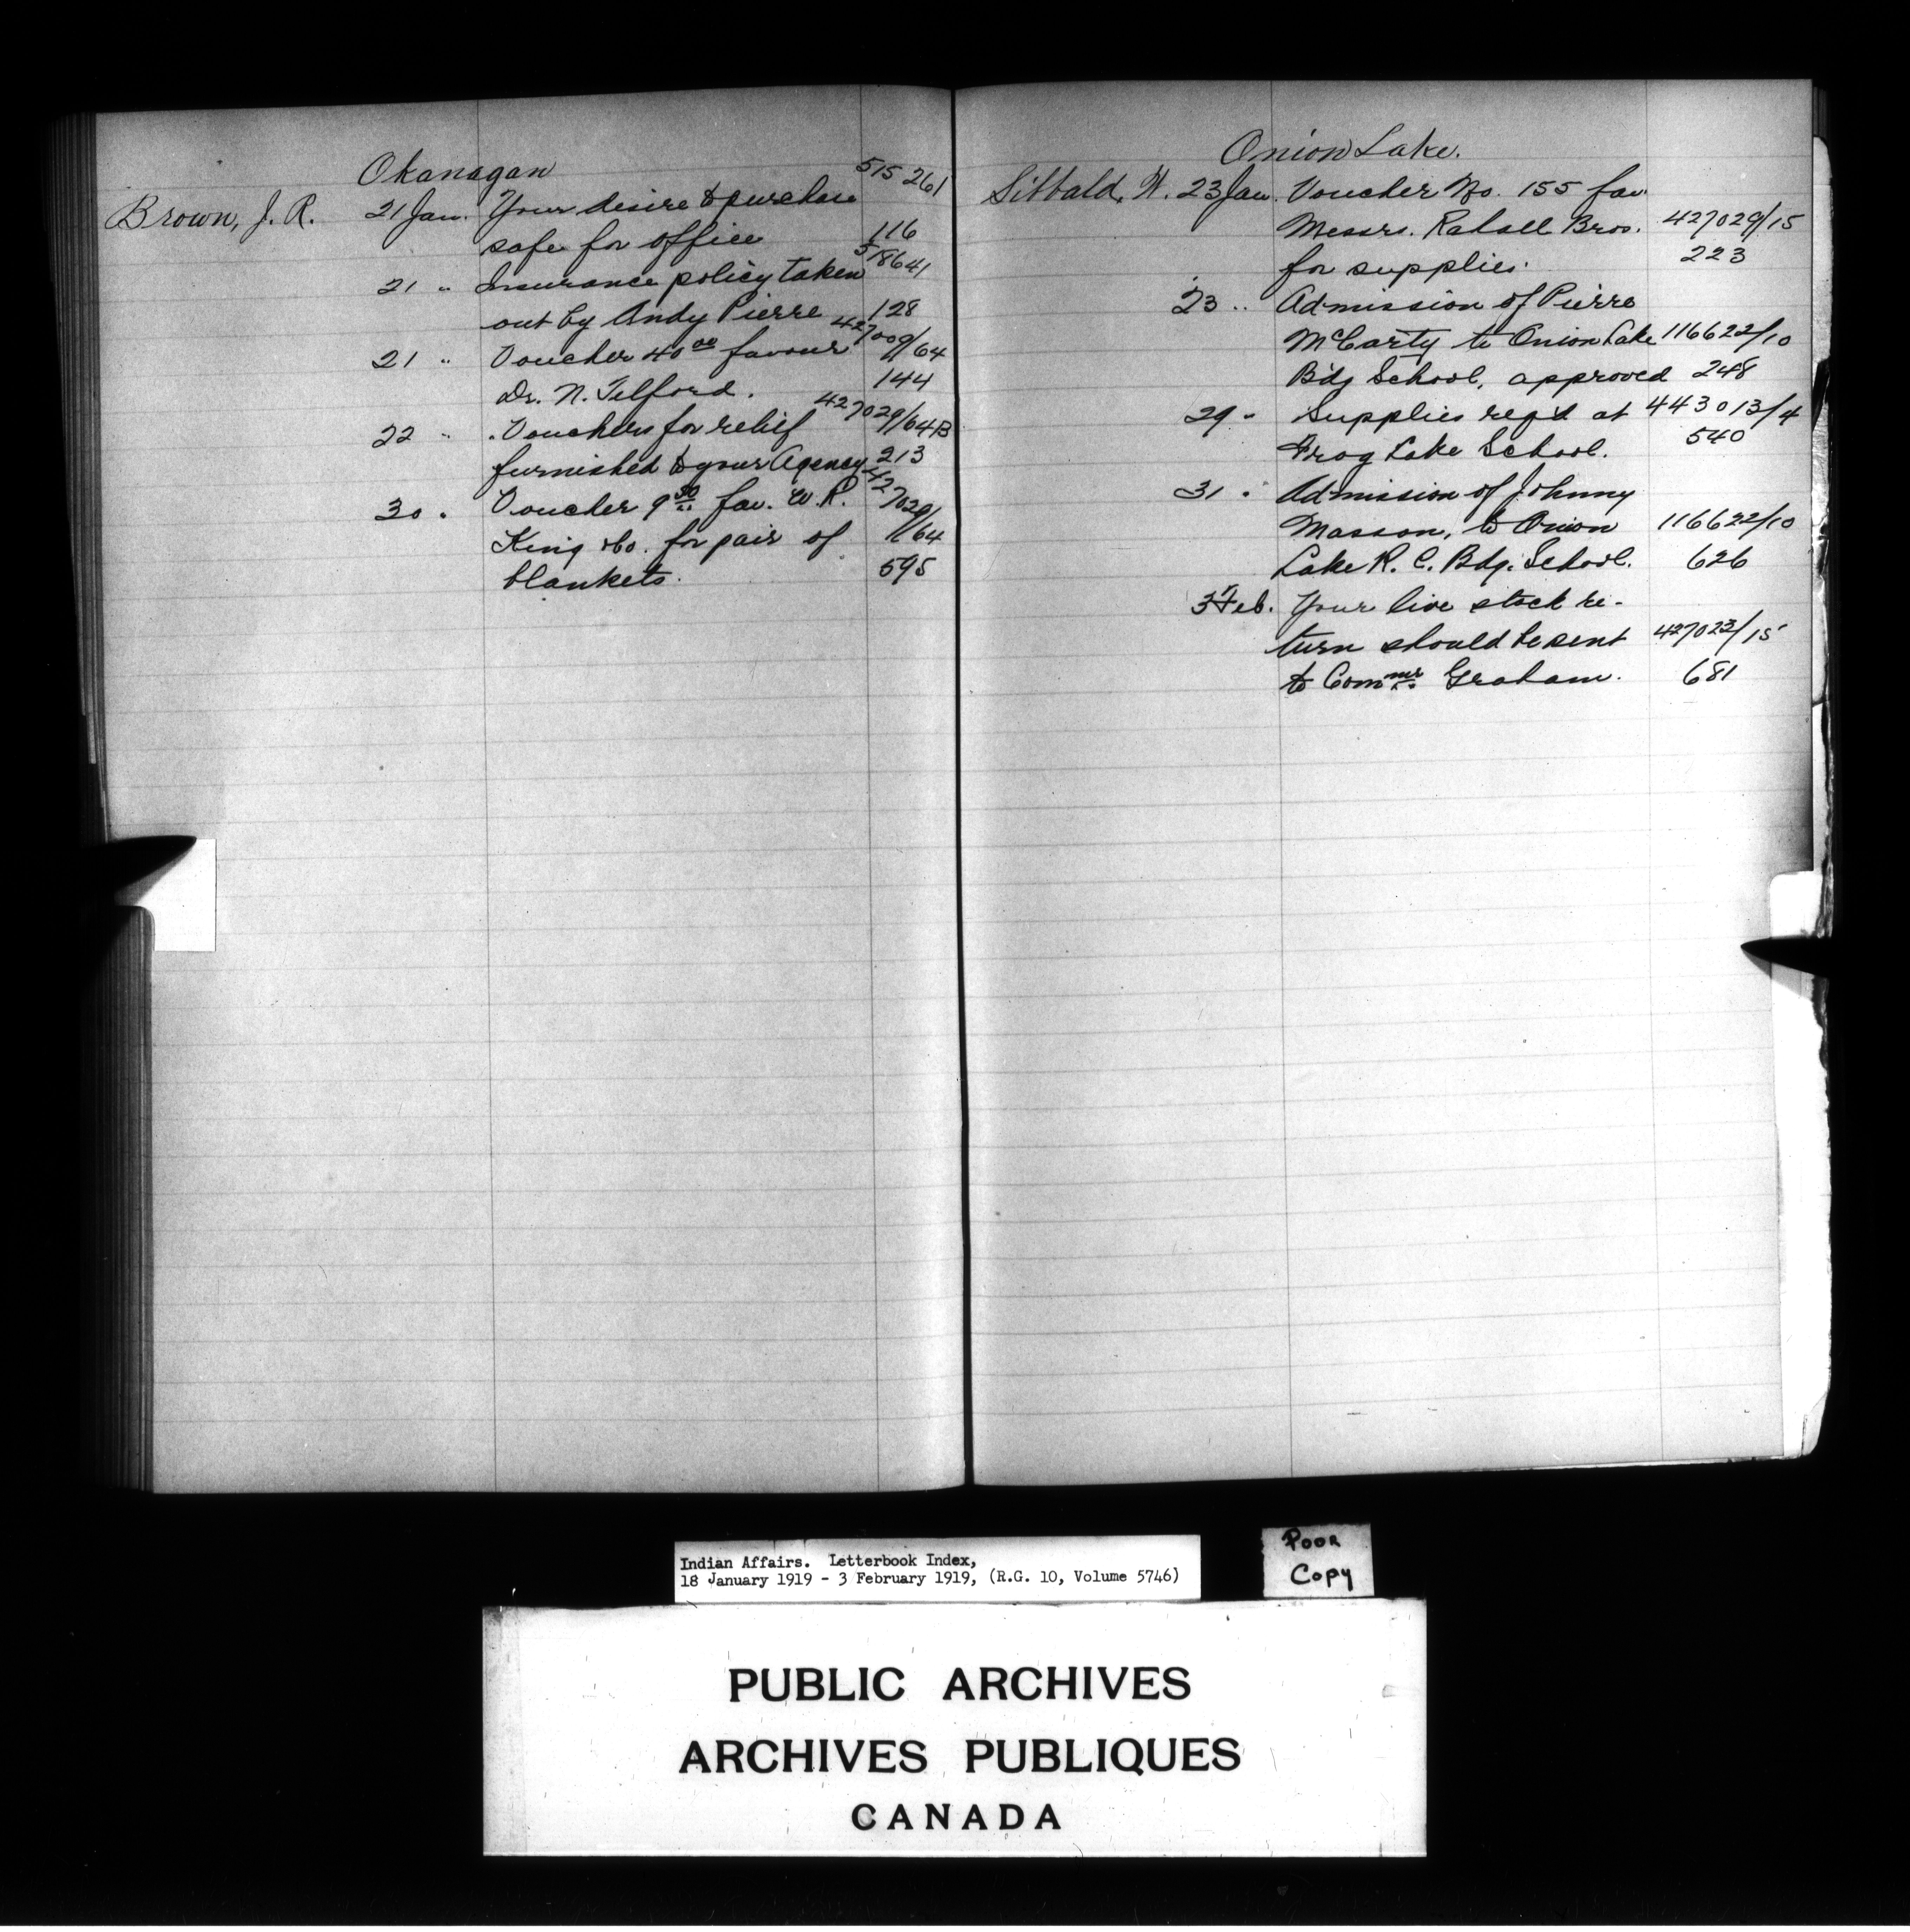 Okanagan
515261
Brown, J. R. 21 Jan. Your desire to purchase
safe for office 116
518641
21 " Insurance policy taken
out by Andy Pierre 128
427009/64
21 " Voucher 40 00 favour
Dr. N. Telford. 144
427029/64B
22 " Vouchers for relief
furnished to your Agency 213
427029/64
30 " Voucher 9 50 fav. W. R.
King & Co. for pair of
blankets. 595
Onion Lake.
Sibbald, W. 23 Jan. Voucher No. 155 fav.
Messrs. Bros. 427029/15
for supplies. 223
23 " Admission of Pierre
McCarty to Onion Lake 116622/10
Bdg School, approved 248
29 " Supplies reqd at 443013/4
Frog Lake School. 540
31 " Admission of Johnny
Masson, to Onion 116622/10
Lake R. C. Bdg. School. 626
3 Feb. Your live stock re-
turn should be sent 427023/15
to Commr Graham. 681
Indian Affairs. Letterbook Index,
18 January 1919 - 3 February 1919, (R.G. 10, Volume 5746)
Poor
Copy
PUBLIC ARCHIVES
ARCHIVES PUBLIQUES
CANADA